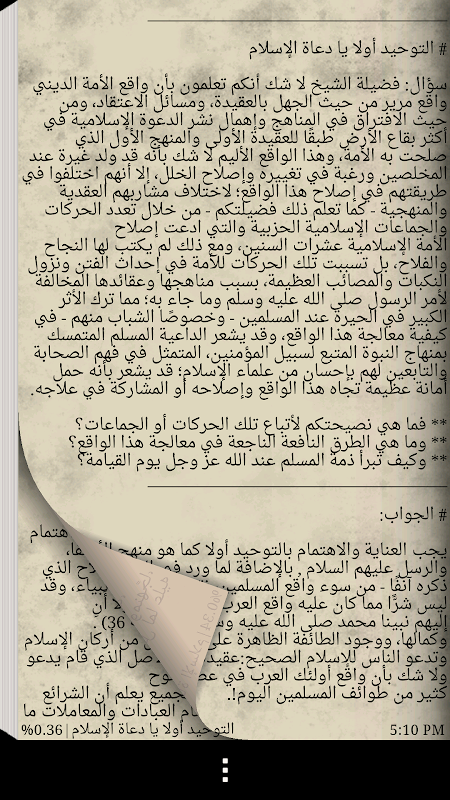 # التوحيد أولا يا دعاة الإسلام
سؤال: فضيلة الشيخ لا شك أنكم تعلمون بأن واقع الأمة الديني
واقع مرير من حيث الجهل بالعقيدة، ومسائل الاعتقاد، ومن
حيث الافتراق في المناهج وإهمال نشر الدعوة الإسلامية في
أكثر بقاع الأرض طبقًا للعقيدة الأولى والمنهج الأول الذي
صلحت به الأمة، وهذا الواقع الأليم لا شك بأنه قد ولد غيرة عند
المخلصين ورغبة في تغييره وإصلاح الخلل، إلا أنهم اختلفوا في
طريقتهم في إصلاح هذا الواقع؛ لاختلاف مشاربهم العقدية
والمنهجية - كما تعلم ذلك فضيلتكم - من خلال تعدد الحركات
والجماعات الإسلامية الحزبية والتي ادعت إصلاح
الأمة الإسلامية عشرات السنين، ومع ذلك لم يكتب لها النجاح
والفلاح، بل تسببت تلك الحركات للأمة في إحداث الفتن ونزول
النكبات والمصائب العظيمة، بسبب مناهجها وعقائدها المخالفة
لأمر الرسول صلى الله عليه وسلم وما جاء به؛ مما ترك الأثر
الكبير في الحيرة عند المسلمين - وخصوصًا الشباب منهم - في
كيفية معالجة هذا الواقع، وقد يشعر الداعية المسلم المتمسك
بمنهاج النبوة المتبع لسبيل المؤمنين، المتمثل في فهم الصحابة
والتابعين لهم بإحسان من علماء الإسلام؛ قد يشعر بأنه حمل
أمانة عظيمة تجاه هذا الواقع وإصلاحه أو المشاركة في علاجه.
** فما هي نصيحتكم لأتباع تلك الحركات أو الجماعات؟
** وما هي الطرق النافعة الناجعة في معالجة هذا الواقع؟
** وكيف تبرأ ذمة المسلم عند الله عز وجل يوم القيامة؟
# الجواب:
يجب العناية والاهتمام بالتوحيد أولا كما هو منهج
والرسل عليهم السلام , بالإضافة لما ورد
ذكره آنفًا - من سوء واقع المسلمين
ليس شرًا مما كان عليه واقع العرب
إليهم نبينا محمد صلى الله عليه
وكمالها، ووجود الطائفة الظاهرة على من أركان الإسلام
وتدعو الناس للإسلام الصحيح:عقيد الذي قام يدعو
ولا شك بأن واقع أولئك العرب في
كثير من طوائف المسلمين اليوم!. جميع يعلم أن الشرائع
العبادات والمعاملات ما
5:10 PM التوحيد أولا يا دعاة الإسلام | 0.36%